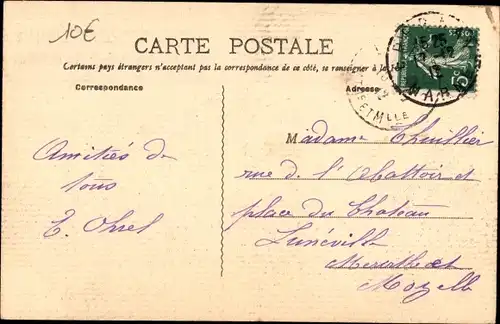 10€
CARTE POSTALE
Certains pays étrangers n'acceptent pas la correspondance de ce côté, se renseigner à la
Correspondance
Adresse
ET MLLE
Amitiés de
tous
E. Ohrel
Madame Thuillier
rue de l'Abattoir et
place du Chateau
Lunéville
Meurthe et
Moselle